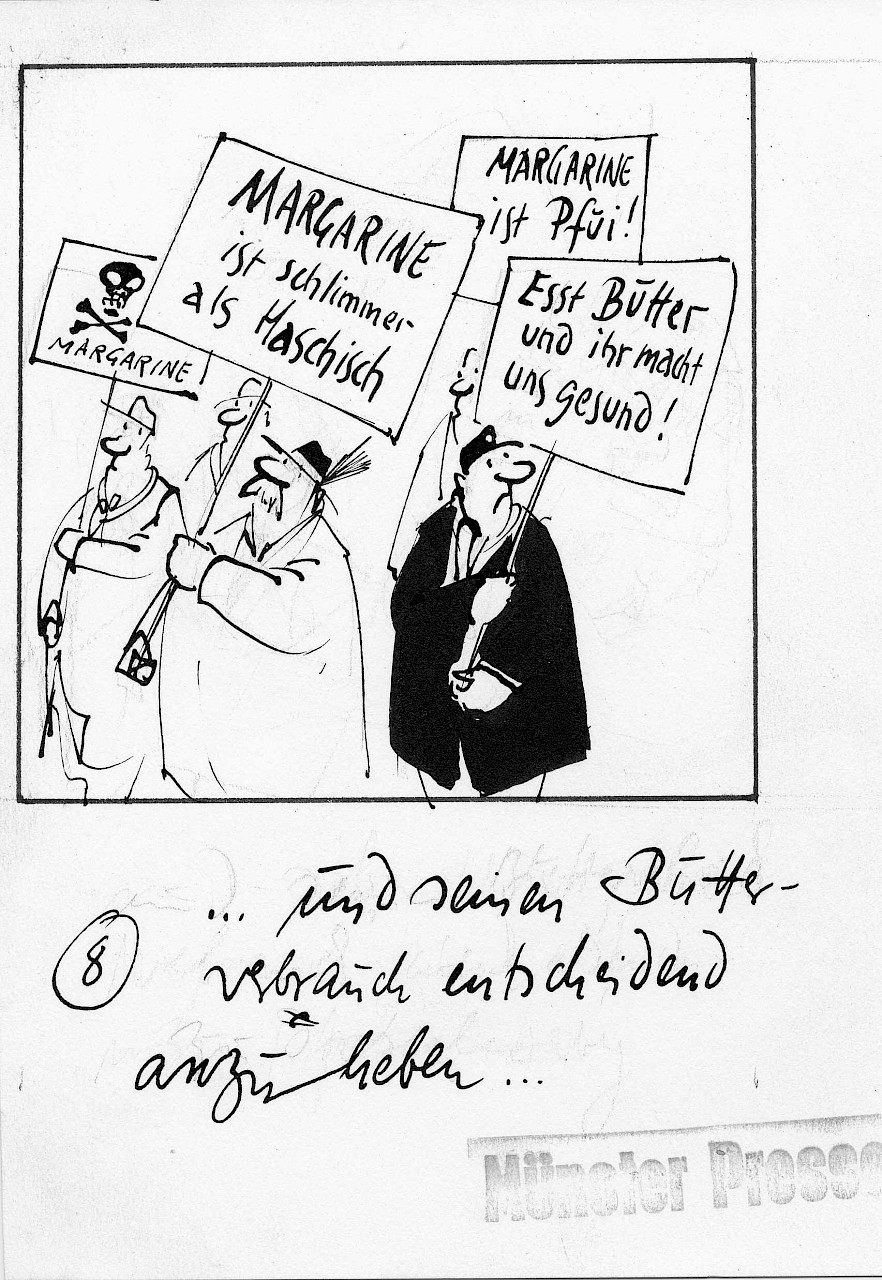 MARGARINE
MARGARINE
ist schlimmer
als Haschisch
MARGARINE
ist Pfui!
Esst Butter
und ihr macht
uns gesund!
8
... und seinen Butter-
verbrauch entscheidend
anzuheben ...
Münster Presse